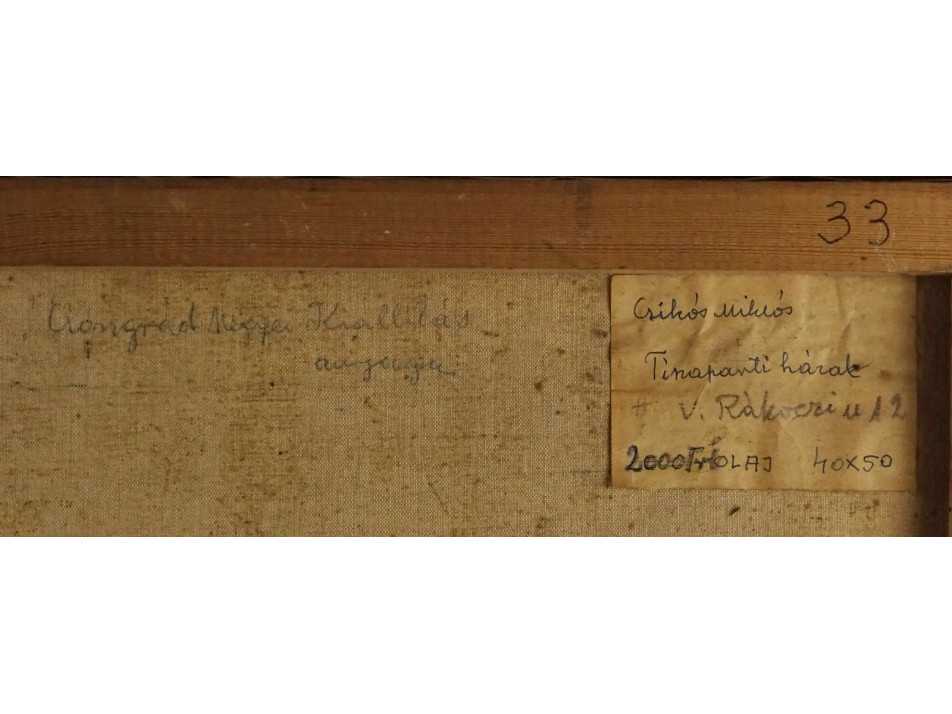 33
Csongrád Megyei Kiállítás
anyaga
Csikós Miklós
Tiszaparti házak
V. Rákoczi u 12
2000Ft OLAJ 40x50